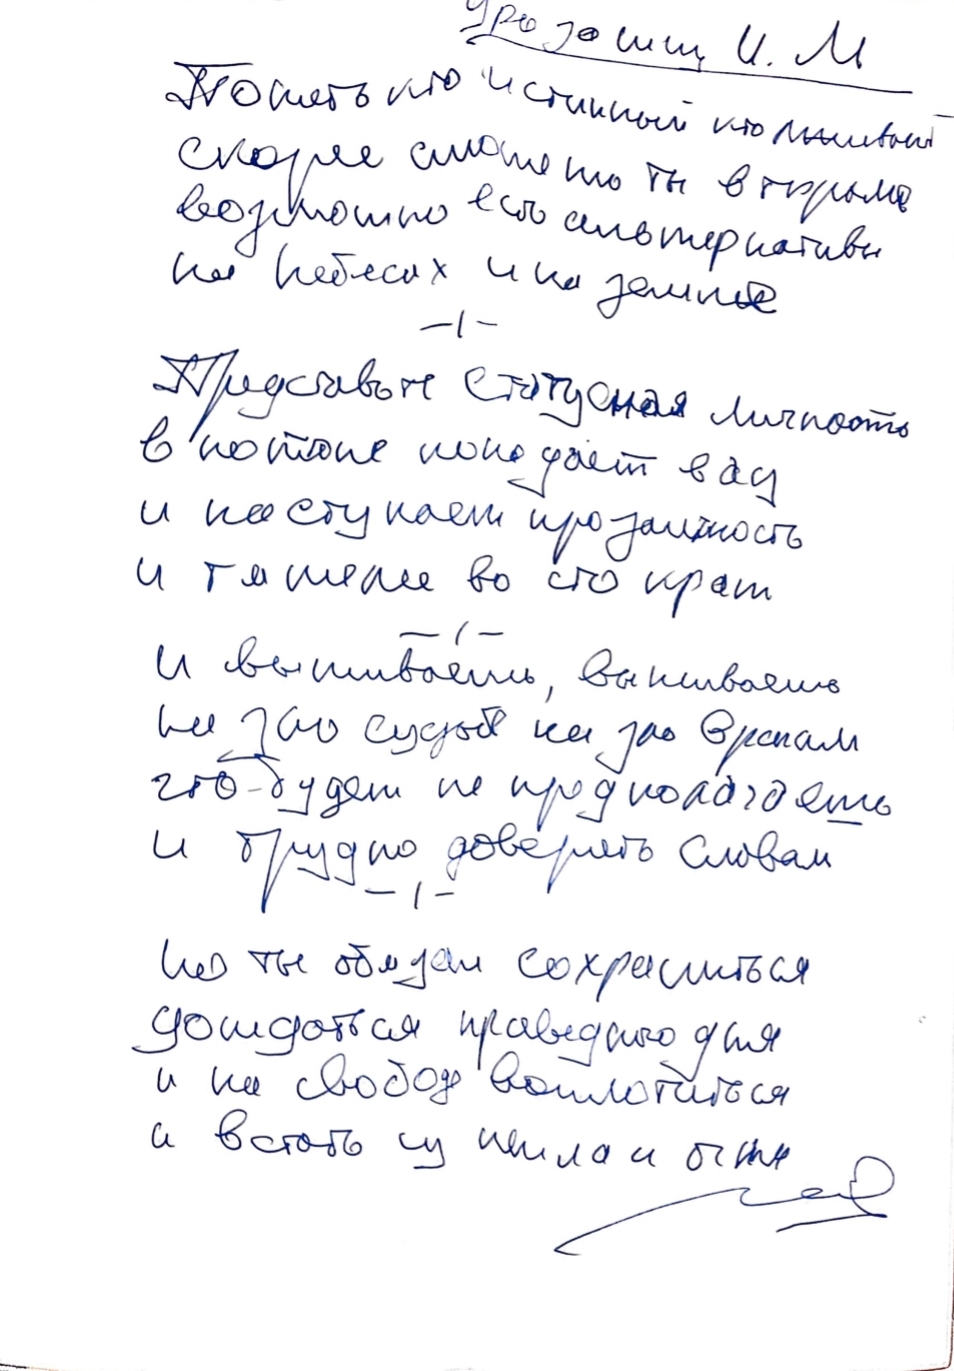 И. М
Понять кто истинный кто лживый
скорее сможешь ты в тюрьме
возможно есть альтернативы
на небесах и на земле
-/-
Представьте статусная личность
в капкане попадает в ад
и наступает прозаичность
и тяжелее во сто крат
-/-
И выживаешь, выживаешь
на зло судьбе на зло врагам
что-будет не предполагаешь
и трудно доверять словам
-/-
Но ты обязан сохраниться
дождаться праведного дня
и на свободе воплотиться
и встать из пепла и огня